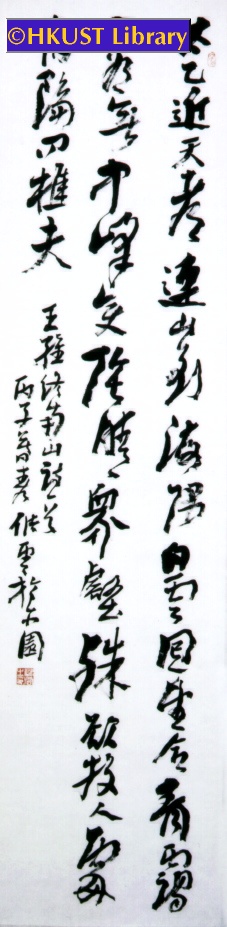 ©HKUST Library
太乙近天都連山到海隅白雲回望合青靄
看無中峰變陰晴眾壑殊欲投人處
隔問樵夫
王維終南山詩一首
丙子春於園